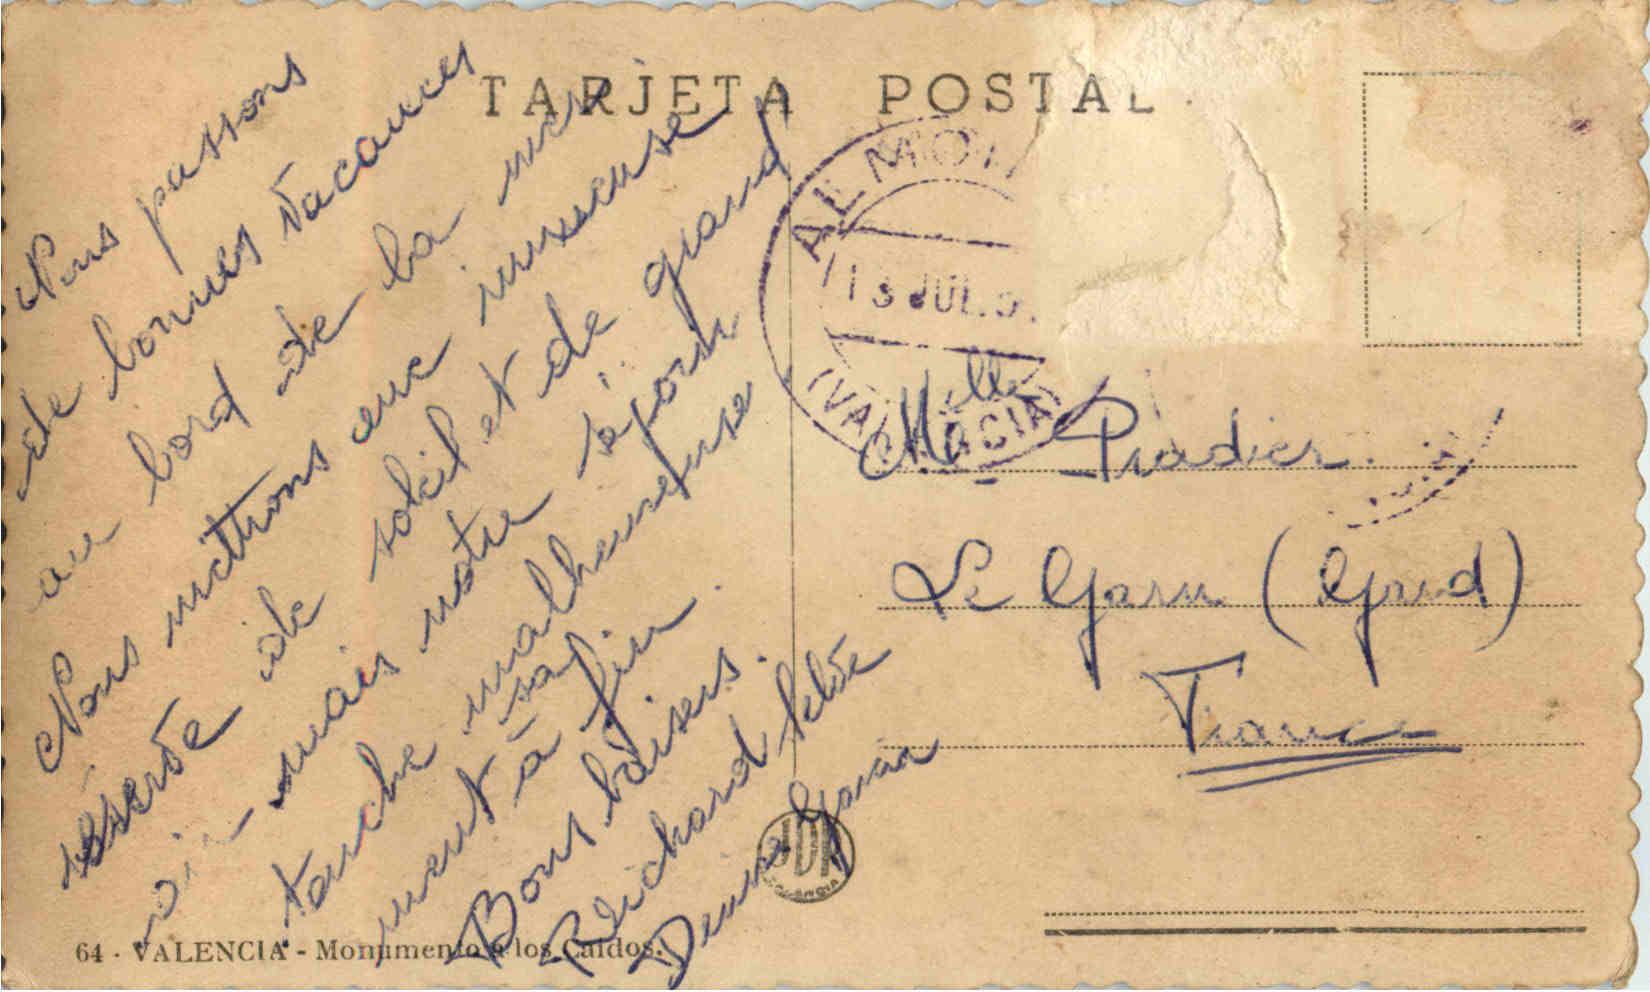 TARJETA POSTAL
Nous passons
de bonnes vacances
au bord de la mer.
Nous mettrons une immense
réserve de soleil et de grand
air - mais notre séjour
touche malheureuse
ment à sa fin.
Bons baisers.
Richard
Denise
ALMO
13 JUL. 5
(VALENCIA)
Melle Pradier
Le Garn (Gard)
France
64 - VALENCIA - Monumento a los Caídos.